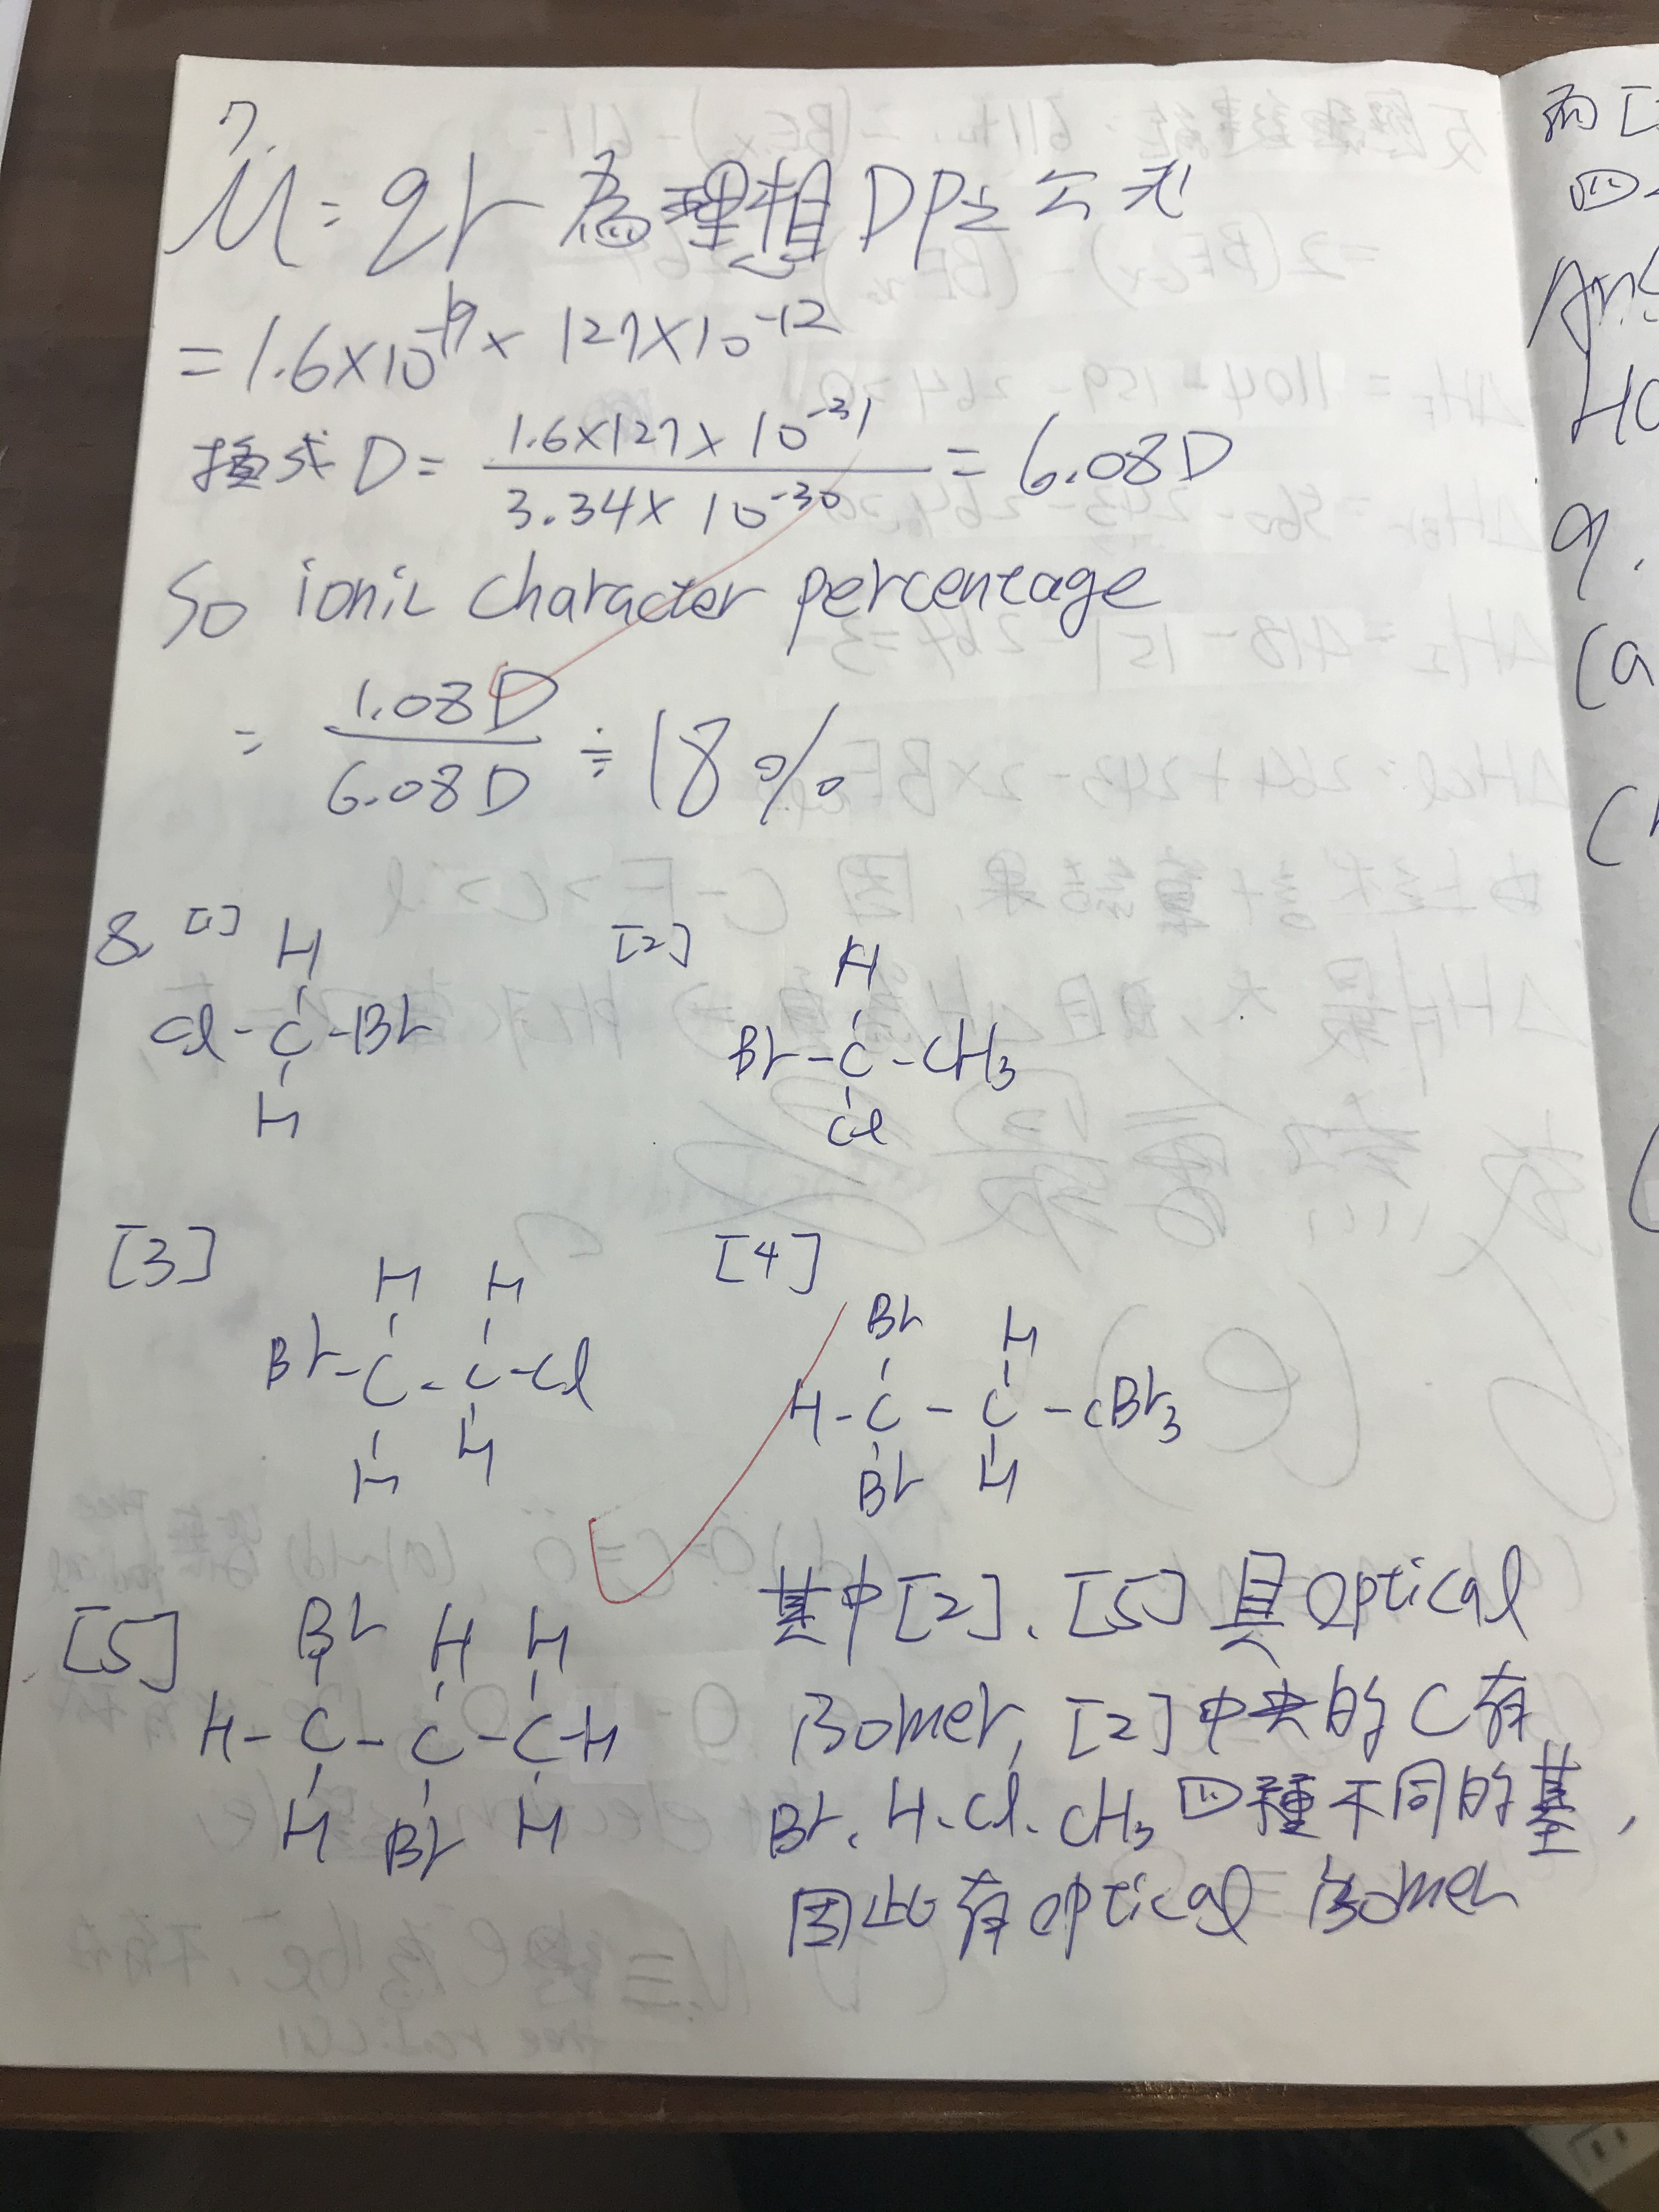 7.
μ = qr 為理想DP之公式
= 1.6×10^-19 × 127×10^-12
換成D = (1.6×127×10^-31)/(3.34×10^-30) = 6.08D
So ionic character percentage
= 1.08D/6.08D ≒ 18%
8. [1] [2]
H H
Cl-C-Br Br-C-CH3
H Cl
[3] [4]
H H Br H
Br-C-C-Cl H-C-C-CBr3
H H Br H
[5]
Br H H
H-C-C-C-H
H Br H
其中[2]、[5]具optical
isomer, [2]中央的C有
Br、H、Cl、CH3四種不同的基,
因此有optical isomer
而[
四
Ans
9.
(a
(